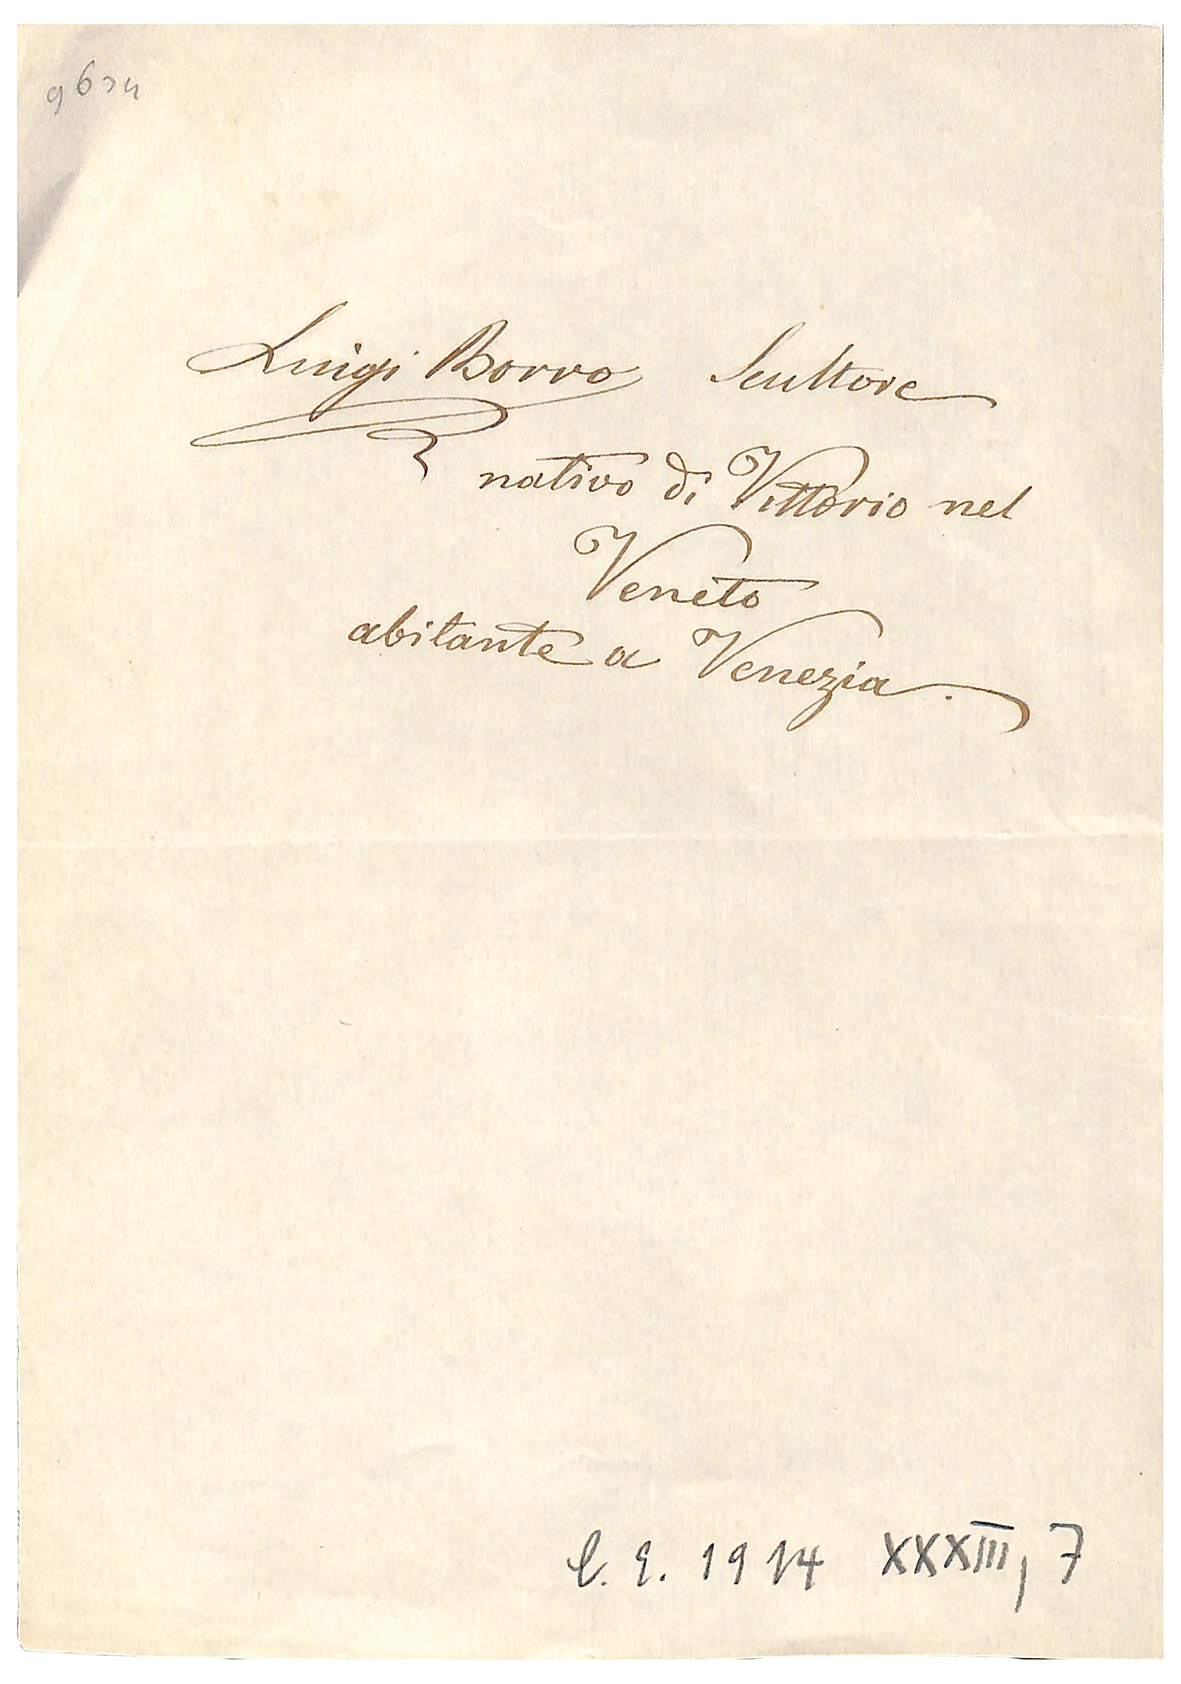 Luigi Borro Scultore
nativo di Vittorio nel
Veneto
abitante a Venezia.
1914 XXXIII, 7